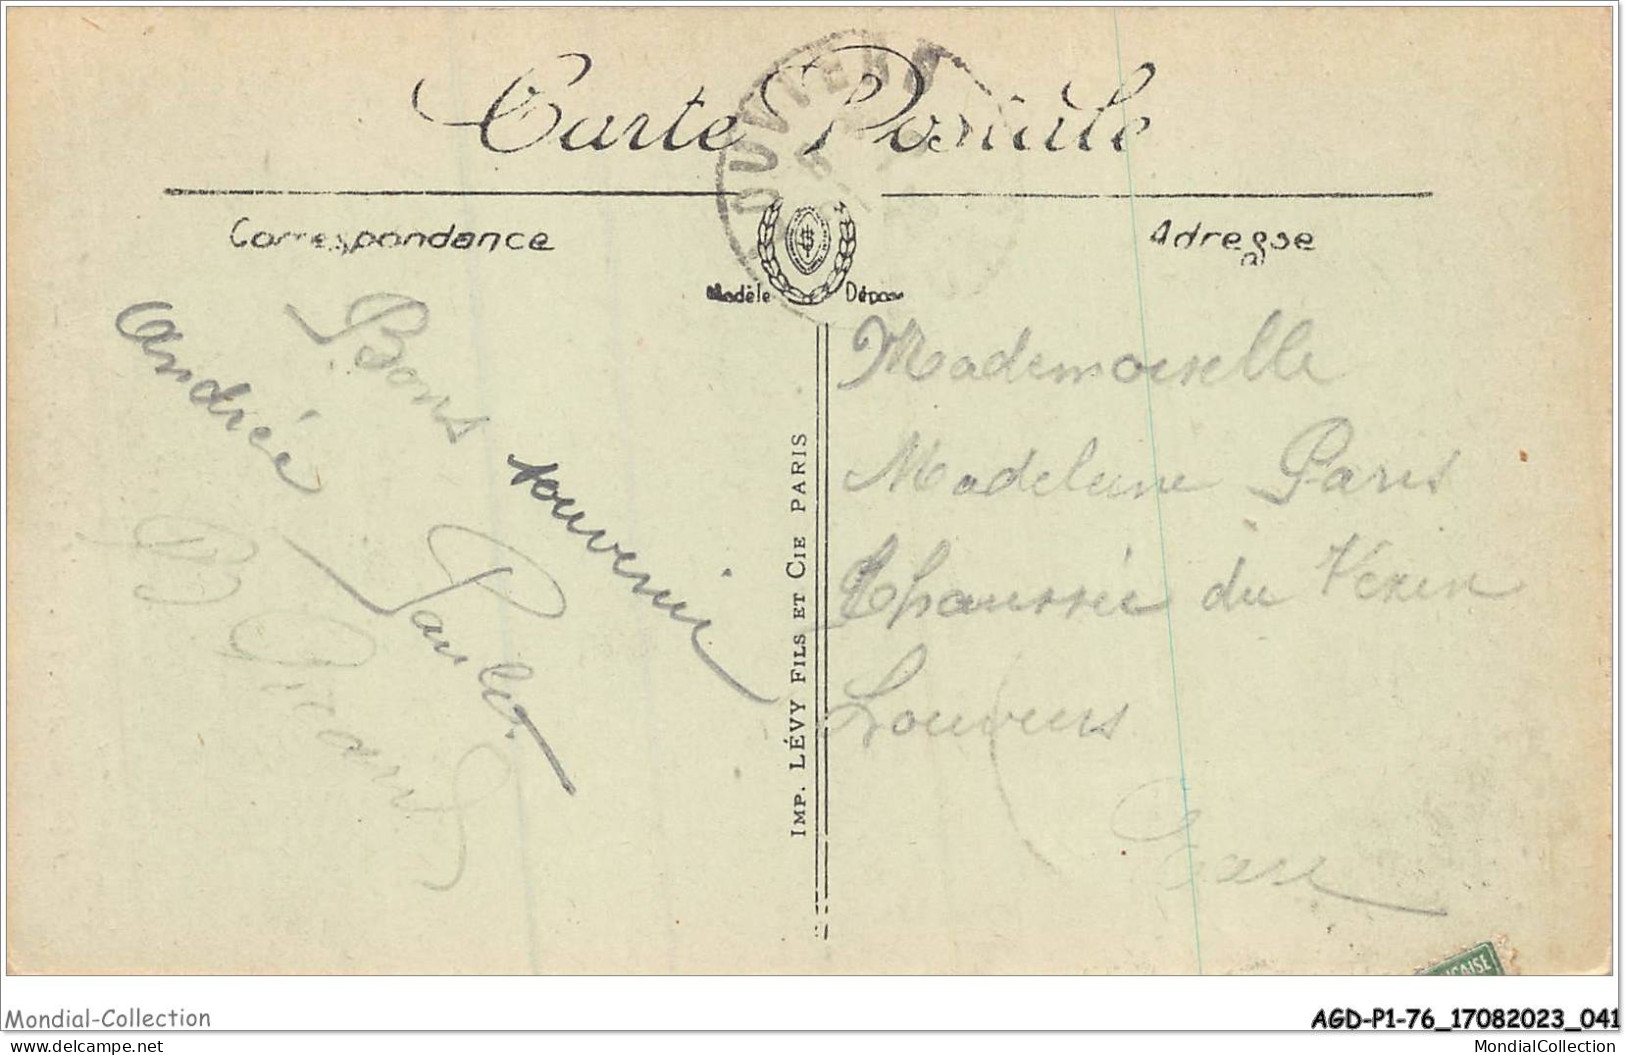 Carte Postale
Correspondance
Adresse
Modèle Déposé
Bons souvenir
Andrée Paulet
IMP. LÉVY FILS ET CIE PARIS
Mademoiselle
Madeleine Paris
Chaussée du Vexin
Louviers
Eure
Mondial-Collection
AGD-P1-76_17082023_041
www.delcampe.net
MondialCollection